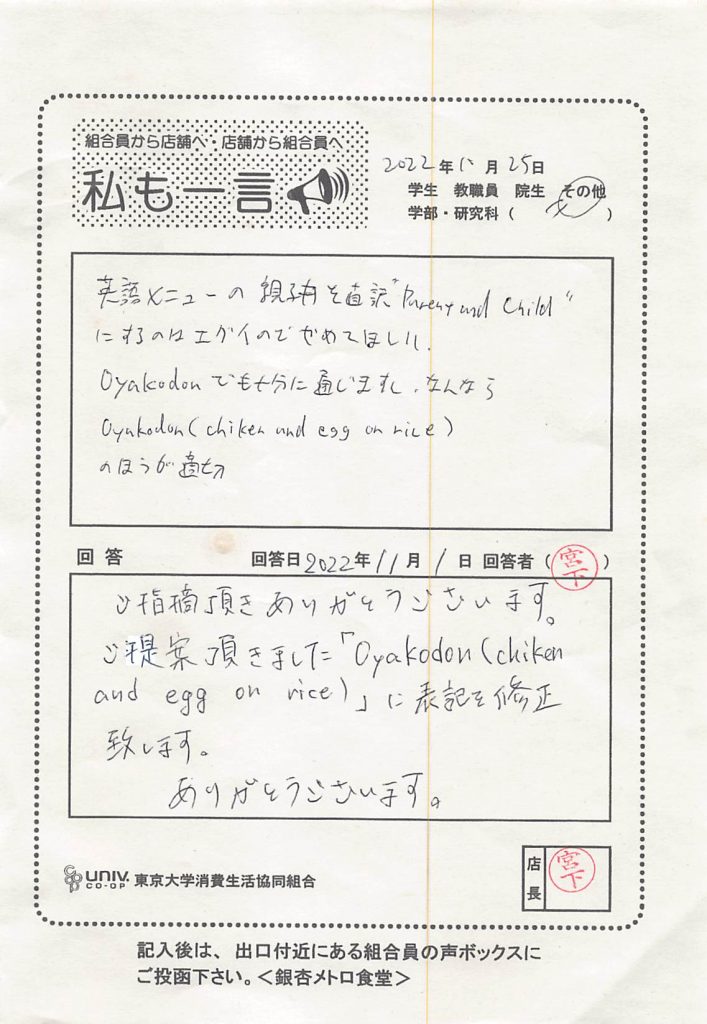 組合員から店舗へ・店舗から組合員へ
私も一言
2022年10月25日
学生 教職員 院生 その他
学部・研究科( )
英語メニューの親子丼を直訳"Parent and Child"
にするのはエグイのでやめてほしい.
Oyakodonでも十分に通じますし、なんなら
Oyakodon(chiken and egg on rice)
のほうが適切
回答 回答日2022年11月1日 回答者(宮下)
ご指摘頂きありがとうございます。
ご提案頂きました「Oyakodon(chiken
and egg on rice)」に表記を修正
致します。
ありがとうございます。
coop UNIV. CO-OP 東京大学消費生活協同組合
店長 宮下
記入後は、出口付近にある組合員の声ボックスに
ご投函下さい。<銀杏メトロ食堂>